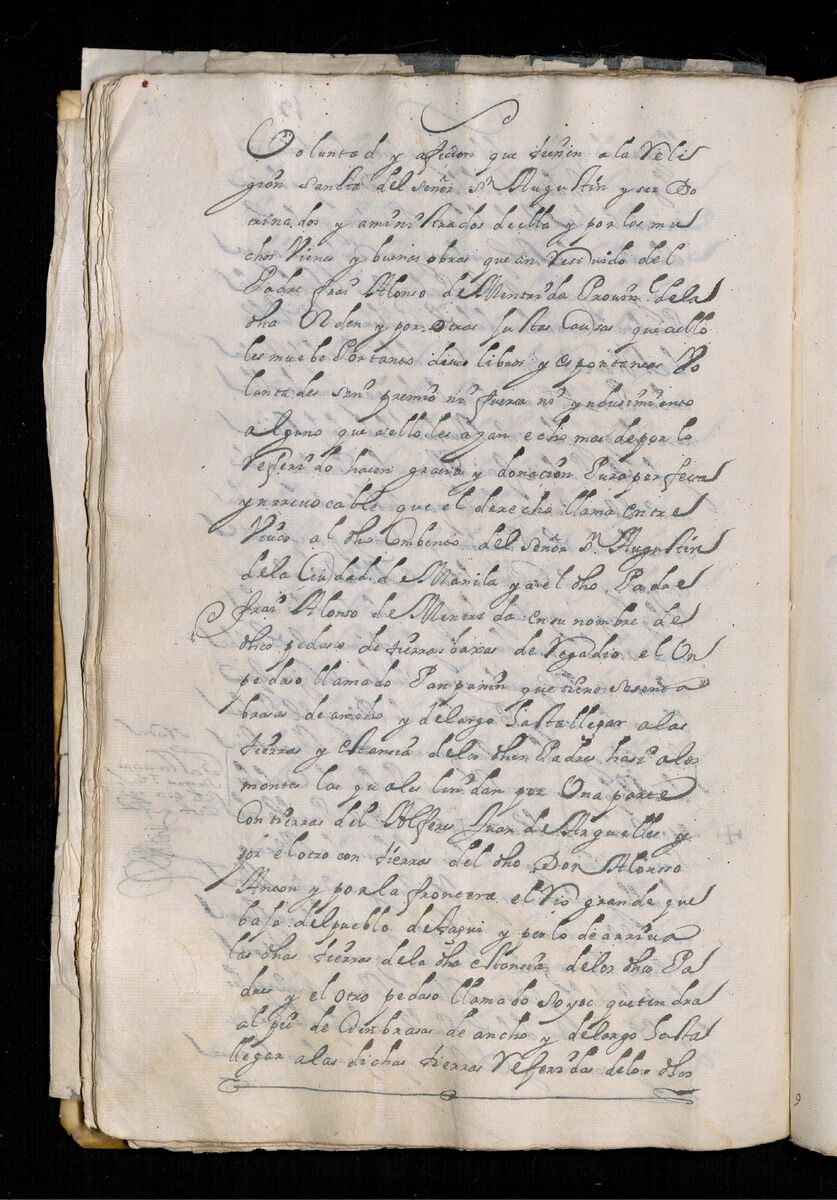 Voluntad y aficion que tienen a la Reli
gion Sancta del Señor Sn Augustin y ser Do
trinados y aministrados de ella y por los mu
chos Vienes y buenas obras que an Resevido del
Padre frai Alonso de Mentrida Provinl. de la
dha Orden y por otras Justas Causas que a ello
les muebe Por tanto de su libres y espontaneas Vo
luntades sin premio ni fuersa ni yndusimiento
alguno que a ello les ayan echo mas de por lo
Referido hacen gracia y donacion Pura perfecta
yrrevocable que el derecho llama entre
Vivos al dho Combento del Señor Sn Augustin
de la Ciudad de Manila y a el dho Padre
frai Alonso de Mentrida en su nombre de
dhos pedasos de tierras baxas de Regadio el Un
pedaso llamado Panpanin que tiene sesenta
brasas de ancho y de largo hasta llegar a las
tierras y estancia de los dhos Padres hasia los
montes las quales lindan por Una parte
Con tierras del Alferes Juan de Arguelles y
por el otro con tierras del dho Don Alonso
Ancon y por la frontera el Rio grande que
baja del pueblo de Taqui y por lo de arriva
las dhas tierras de la dha estancia de los dhos Pa
dres y el otro pedaso llamado Soyoc que tendra
al pie de Cien brasas de ancho y de largo hasta
llegar a las dichas tierras Referidas de los dhos